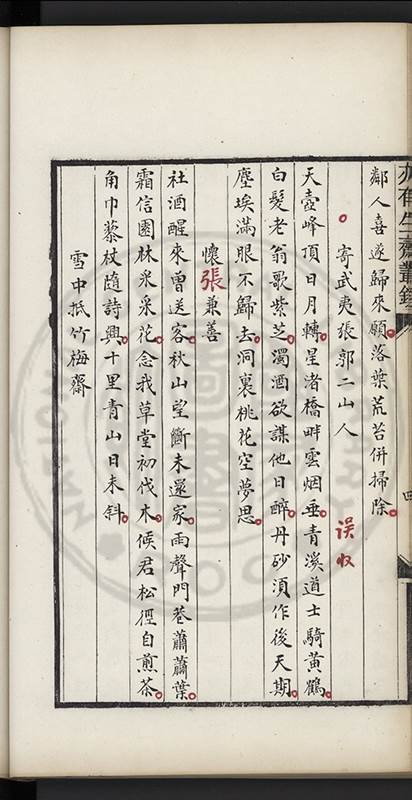 亦有生齋叢錄
鄰人喜遂歸來願落葉荒苔併掃除
寄武夷張郭二山人
误收
天壺峰頂日月轉星渚橋畔雲烟垂青溪道士騎黃鶴
白髮老翁歌紫芝濁酒欲謀他日醉丹砂須作後天期
塵埃滿眼不歸去洞裏桃花空夢思
懷張兼善
社酒醒來曾送客秋山望斷未還家雨聲門巷蕭蕭葉
霜信園林采采花念我草堂初伐木候君松徑自煎茶
角巾藜杖隨詩興十里青山日未斜
雪中抵竹梅齋